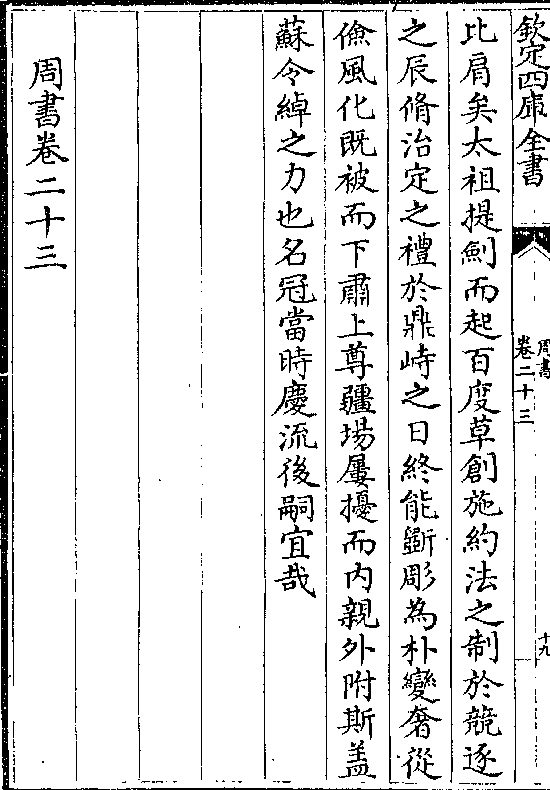 欽定四庫全書
周書
卷二十三
十九
比肩矣太祖提劎而起百度草創施約法之制於競逐
之辰脩治定之禮於鼎峙之日終能斲彫為朴變奢從
儉風化既被而下肅上尊疆場屢擾而内親外附斯盖
蘇令綽之力也名冠當時慶流後嗣宜哉
周書卷二十三